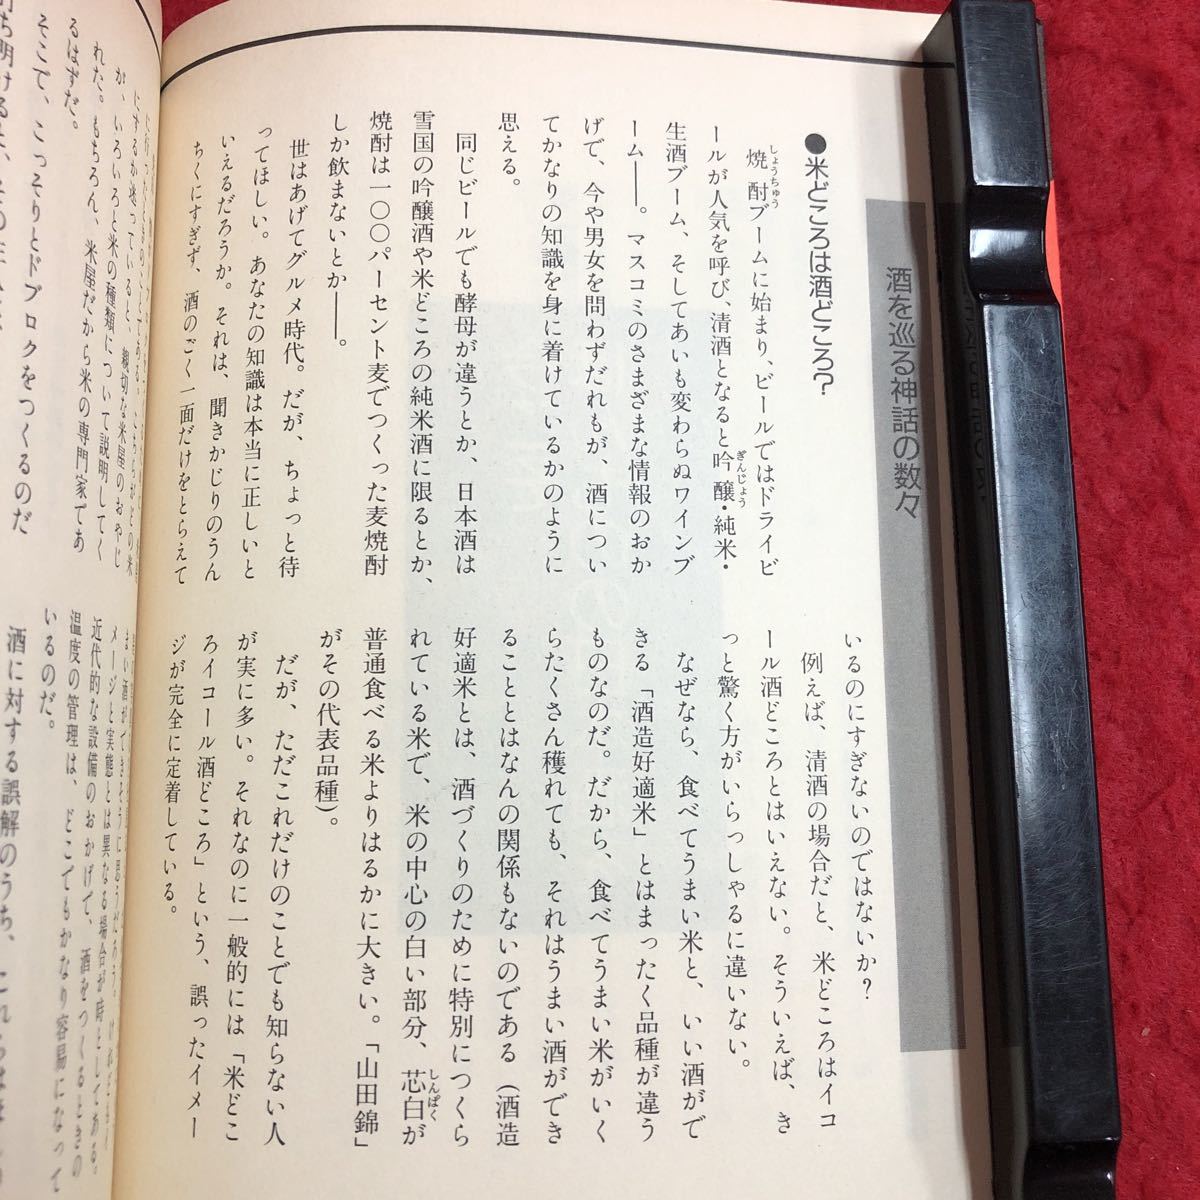 酒を巡る神話の数々
●米どころは酒どころ?
焼酎ブームに始まり、ビールではドライビ
しょうちゅう
ールが人気を呼び、清酒となると吟醸・純米・
ぎんじょう
生酒ブーム、そしてあいも変わらぬワインブ
ーム――。マスコミのさまざまな情報のおか
げで、今や男女を問わずだれもが、酒につい
てかなりの知識を身に着けているかのように
思える。
同じビールでも酵母が違うとか、日本酒は
雪国の吟醸酒や米どころの純米酒に限るとか、
焼酎は一〇〇パーセント麦でつくった麦焼酎
しか飲まないとか――。
世はあげてグルメ時代。だが、ちょっと待
ってほしい。あなたの知識は本当に正しいと
いえるだろうか。それは、聞きかじりのうん
ちくにすぎず、酒のごく一面だけをとらえて
いるのにすぎないのではないか?
例えば、清酒の場合だと、米どころはイコ
ール酒どころとはいえない。そういえば、き
っと驚く方がいらっしゃるに違いない。
なぜなら、食べてうまい米と、いい酒がで
きる「酒造好適米」とはまったく品種が違う
ものなのだ。だから、食べてうまい米がいく
らたくさん穫れても、それはうまい酒ができ
ることとはなんの関係もないのである(酒造
好適米とは、酒づくりのために特別につくら
れている米で、米の中心の白い部分、芯白が
しんぱく
普通食べる米よりはるかに大きい。「山田錦」
がその代表品種)。
だが、ただこれだけのことでも知らない人
が実に多い。それなのに一般的には「米どこ
ろイコール酒どころ」という、誤ったイメー
ジが完全に定着している。
にするか迷っていると、親切な米屋のおやじ
が、いろいろと米の種類について説明してく
れた。もちろん、米屋だから米の専門家であ
るはずだ。
そこで、こっそりとドブロクをつくるのだ
メージと実態とは異なる場合が時としてある。
近代的な設備のおかげで、酒をつくるときの
温度の管理は、どこでもかなり容易になって
いるのだ。
酒に対する誤解のうち、